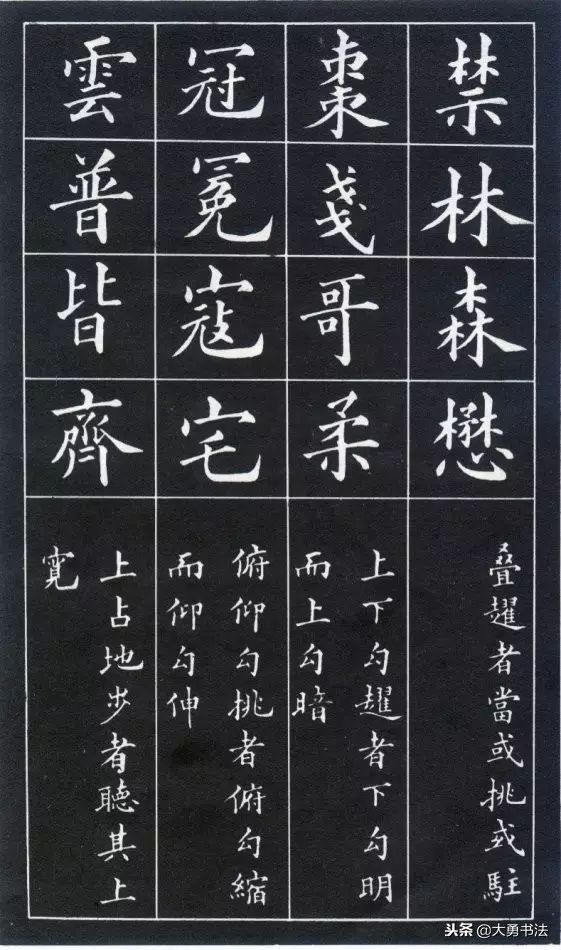 禁林森懋
叠趯者當或挑或駐
棗戔哥柔
上下勾趯者下勾明
而上勾暗
冠冕寇宅
俯仰勾挑者俯勾縮
而仰勾伸
雲普皆齊
上占地步者聽其上
寬
头条 @大勇书法